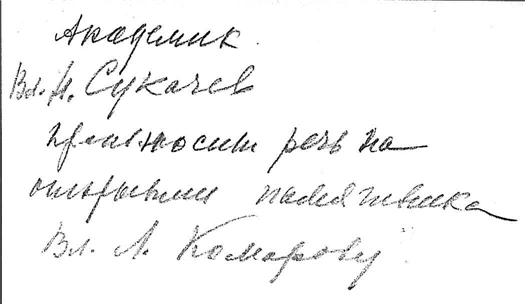 Академик
Вл. Н. Сукачев
произносит речь на
открытии памятника
Вл. Л. Комарову